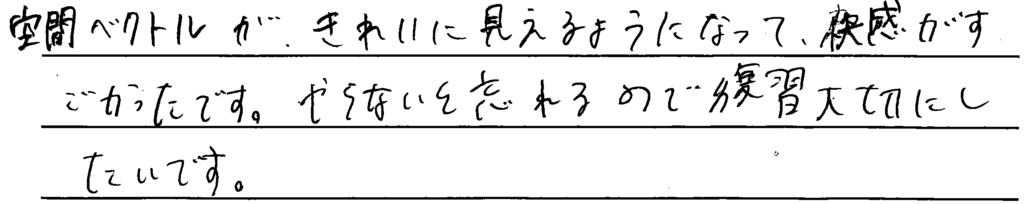 空間ベクトルが、きれいに見えるようになって、快感がす
ごかったです。やらないと忘れるので復習大切にし
たいです。